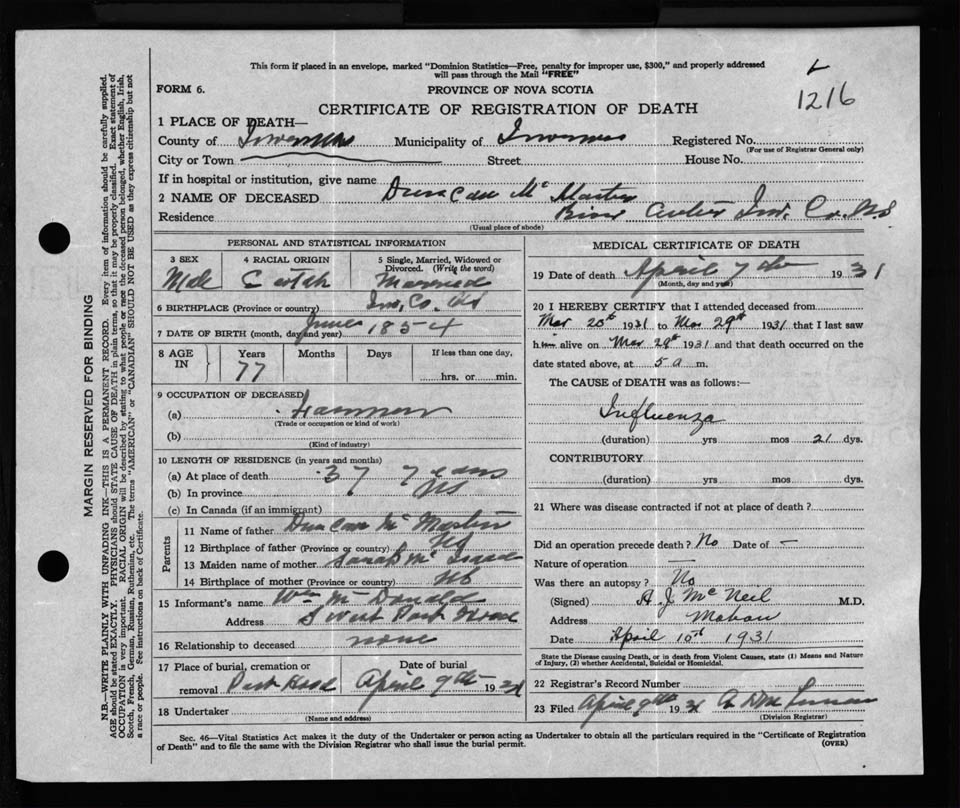 This form if placed in an envelope, marked "Dominion Statistics—Free, penalty for improper use, $300," and properly addressed
will pass through the Mail "FREE"
1216
FORM 6.
PROVINCE OF NOVA SCOTIA
CERTIFICATE OF REGISTRATION OF DEATH
1 PLACE OF DEATH—
County of Inverness Municipality of Inverness Registered No.
(For use of Registrar General only)
City or Town Street House No.
If in hospital or institution, give name
2 NAME OF DECEASED Duncan Mc Master
Residence River Inv. Co. N.S
(Usual place of abode)
PERSONAL AND STATISTICAL INFORMATION
3 SEX 4 RACIAL ORIGIN 5 Single, Married, Widowed or Divorced. (Write the word)
Male Married
6 BIRTHPLACE (Province or country) Inv, Co, NS
7 DATE OF BIRTH (month, day and year) June 1854
8 AGE IN Years Months Days If less than one day,
77 hrs. or min.
9 OCCUPATION OF DECEASED
(a)
(Trade or occupation or kind of work)
(b)
(Kind of industry)
10 LENGTH OF RESIDENCE (in years and months)
(a) At place of death 37 years
(b) In province NS
(c) In Canada (if an immigrant)
Parents
11 Name of father Duncan Mc Master
12 Birthplace of father (Province or country) NS
13 Maiden name of mother Sarah Mc
14 Birthplace of mother (Province or country) NS
15 Informant's name Wm McDonald
Address S West Port
16 Relationship to deceased none
17 Place of burial, cremation or removal Date of burial
Port Hood April 9th 1931
18 Undertaker
(Name and address)
MEDICAL CERTIFICATE OF DEATH
19 Date of death April 7th 1931
(Month, day and year)
20 I HEREBY CERTIFY that I attended deceased from
Mar 20th 1931 to Mar 29th 1931 that I last saw
him alive on Mar 29th 1931 and that death occurred on the
date stated above, at 5 a m.
The CAUSE of DEATH was as follows:—
Influenza
(duration) yrs mos 21 dys.
CONTRIBUTORY
(duration) yrs. mos. dys.
21 Where was disease contracted if not at place of death?
Did an operation precede death? No Date of —
Nature of operation —
Was there an autopsy? No
(Signed) A. J. McNeil M.D.
Address Mabou
Date April 10th 1931
State the Disease causing Death, or in death from Violent Causes, state (1) Means and Nature
of Injury, (2) whether Accidental, Suicidal or Homicidal.
22 Registrar's Record Number
23 Filed April 9th 1931
(Division Registrar)
Sec. 46—Vital Statistics Act makes it the duty of the Undertaker or person acting as Undertaker to obtain all the particulars required in the "Certificate of Registration
of Death" and to file the same with the Division Registrar who shall issue the burial permit.
(OVER)
MARGIN RESERVED FOR BINDING
N.B.—WRITE PLAINLY WITH UNFADING INK—THIS IS A PERMANENT RECORD. Every item of information should be carefully supplied.
AGE should be stated EXACTLY. PHYSICIANS should STATE CAUSE OF DEATH in plain terms, so that it may be properly classified. Exact statement of
OCCUPATION is very important. RACIAL ORIGIN will be described by stating to what people or race the deceased person belonged, whether English, Irish,
Scotch, French, German, Russian, Ruthenian, etc. The terms "AMERICAN" or "CANADIAN" SHOULD NOT BE USED as they express citizenship but not
a race or people. See instructions on back of Certificate.